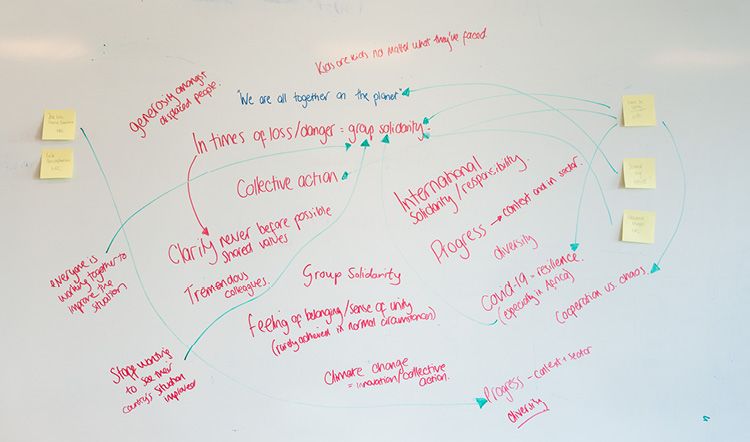 Kids are kids no matter what they've faced.
generosity amongst
displaced people.
"We are all together on the planet"
In times of loss/danger = group solidarity.
Collective action
International
solidarity/responsibility.
Clarity never before possible
shared values
Progress → context and in sector.
diversity
Tremendous
colleagues.
Group Solidarity
Covid-19 - resilience.
(especially in Africa)
Cooperation vs. chaos.
everyone is
working together to
improve the
situation)
Feeling of belonging/sense of unity
(rarely achieved in normal circumstances)
Staff wanting
to see their
country's situation
improved
Climate change
= innovation/collective
action.
Progress - context + sector
diversity